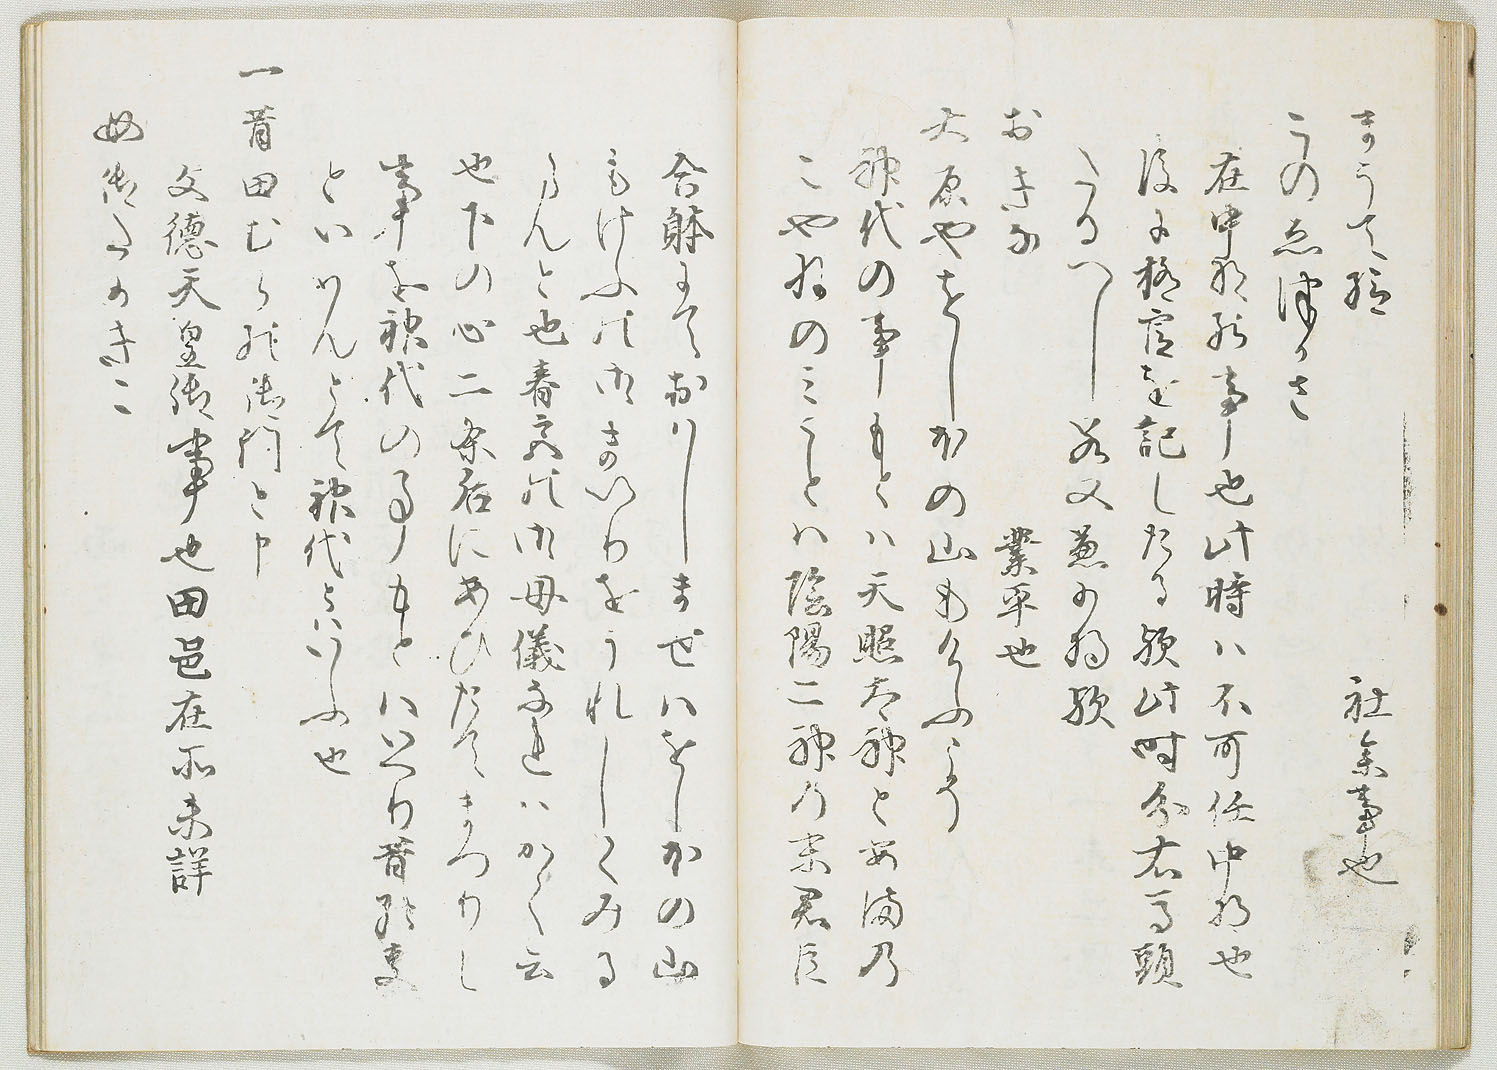 まうて給 社参事也
このゑ津かさ
在中将の事也此時ハ不可任中将也
後に極官を記したる歟此時分右馬頭
たるへし若又兼少将歟
おきな 業平也
大原やをしほの山もけふこそ
神代の事もとハ天照太神と安満乃
こやねのみことハ陰陽二神乃末君臣
合躰にておハしませはをしほの山
もけふの御まいりをうれしくみる
らんと也春宮の御母儀なれハかく云
也下の心二条后にあひたてまつりし
事を神代の事もとハいへり昔の事
といはんとて神代とハいふ也
一昔田むらの御門と申
文徳天皇御事也田邑在所未詳
女御たかきこ